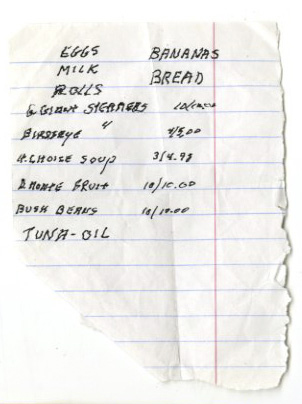 EGGS BANANAS
MILK BREAD
ROLLS
GIANT STEAMERS 10/10.00
BIRDSEYE " 4/5.00
H. CHOISE SOUP 3/4.98
D MONTE FRUIT 10/10.00
BUSH BEANS 10/10.00
TUNA-OIL